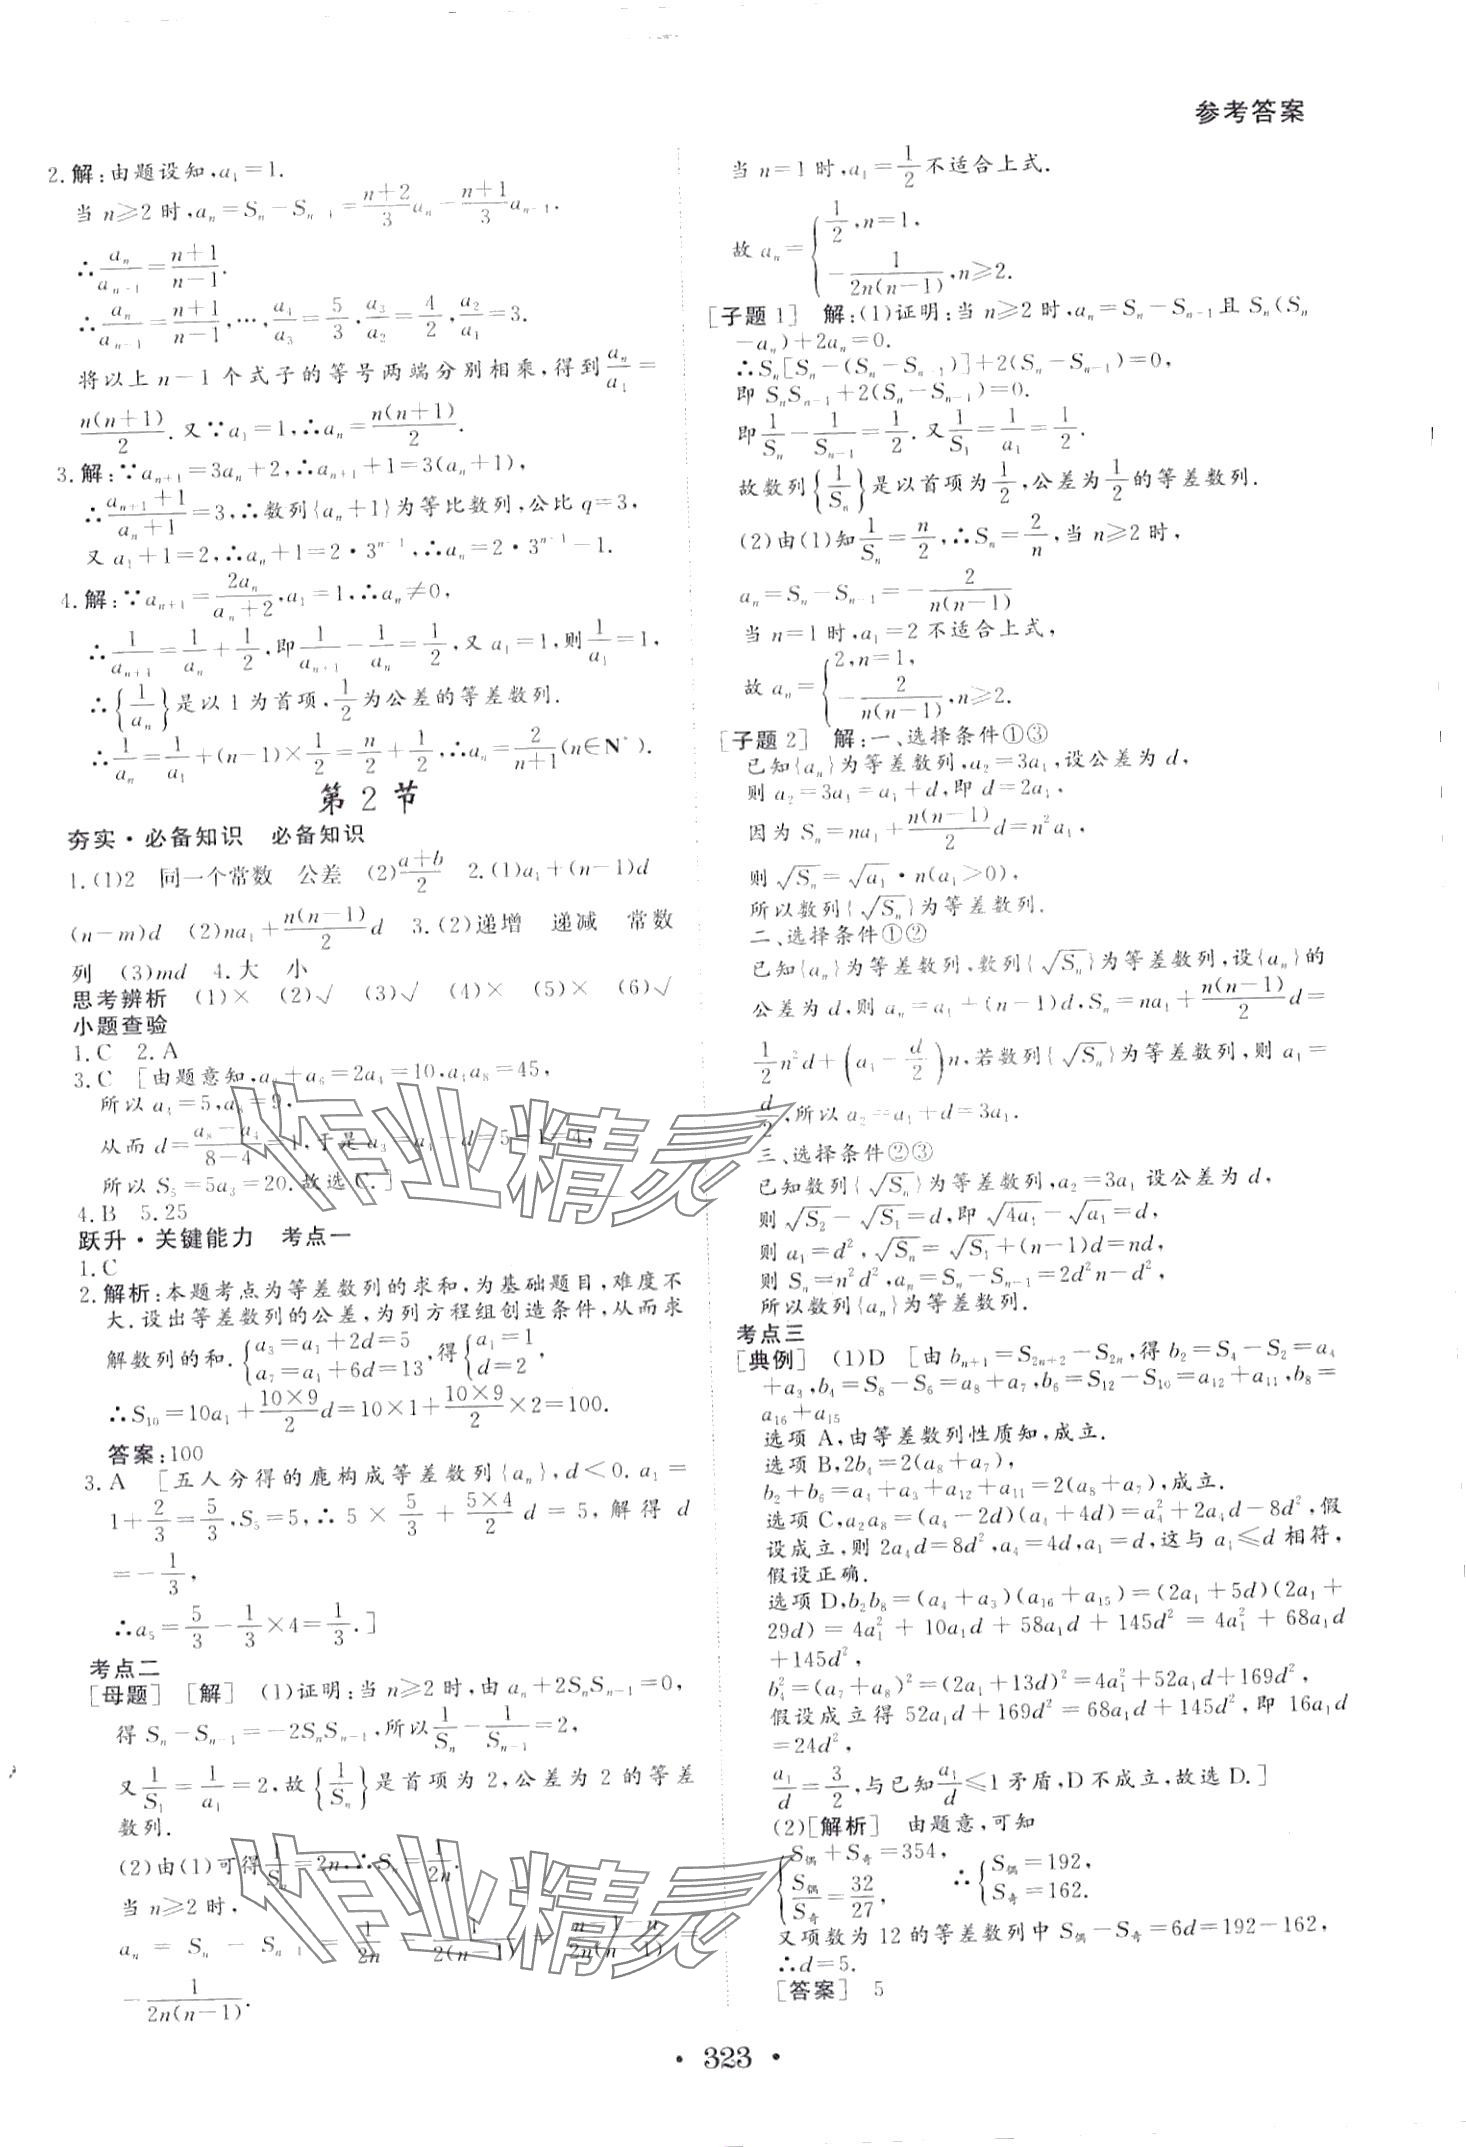 参考答案
2.解:由题设知,a₁=1.
当 n≥2 时,aₙ=Sₙ-Sₙ₋₁=(n+2)/3 aₙ-(n+1)/3 aₙ₋₁.
∴aₙ/aₙ₋₁=(n+1)/(n-1).
∴aₙ/aₙ₋₁=(n+1)/(n-1),…,a₄/a₃=5/3,a₃/a₂=4/2,a₂/a₁=3.
将以上 n-1 个式子的等号两端分别相乘,得到aₙ/a₁=
n(n+1)/2.又∵a₁=1,∴aₙ=n(n+1)/2.
3.解:∵aₙ₊₁=3aₙ+2,∴aₙ₊₁+1=3(aₙ+1),
∴(aₙ₊₁+1)/(aₙ+1)=3,∴数列{aₙ+1}为等比数列,公比 q=3,
又 a₁+1=2,∴aₙ+1=2·3ⁿ⁻¹,∴aₙ=2·3ⁿ⁻¹-1.
4.解:∵aₙ₊₁=2aₙ/(aₙ+2),a₁=1,∴aₙ≠0,
∴1/aₙ₊₁=1/aₙ+1/2,即1/aₙ₊₁-1/aₙ=1/2,又 a₁=1,则1/a₁=1,
∴{1/aₙ}是以 1 为首项,1/2为公差的等差数列.
∴1/aₙ=1/a₁+(n-1)×1/2=n/2+1/2,∴aₙ=2/(n+1)(n∈N*).
第 2 节
夯实·必备知识 必备知识
1.(1)2 同一个常数 公差 (2)(a+b)/2 2.(1)a₁+(n-1)d
(n-m)d (2)na₁+n(n-1)/2 d 3.(2)递增 递减 常数
列 (3)md 4.大 小
思考辨析 (1)× (2)√ (3)√ (4)× (5)× (6)√
小题查验
1.C 2.A
3.C [由题意知,a₂+a₆=2a₄=10,a₄a₈=45,
所以 a₄=5,a₈=9,
从而 d=(a₈-a₄)/(8-4)=1,于是 a₃=a₄-d=5-1=4,
所以 S₅=5a₃=20.故选 C.]
4.B 5.25
跃升·关键能力 考点一
1.C
2.解析:本题考点为等差数列的求和,为基础题目,难度不
大.设出等差数列的公差,为列方程组创造条件,从而求
解数列的和.{a₃=a₁+2d=5 a₇=a₁+6d=13,得{a₁=1 d=2,
∴S₁₀=10a₁+(10×9)/2 d=10×1+(10×9)/2×2=100.
答案:100
3.A [五人分得的鹿构成等差数列{aₙ},d<0.a₁=
1+2/3=5/3,S₅=5,∴5×5/3+(5×4)/2 d=5,解得 d
=-1/3,
∴a₅=5/3-1/3×4=1/3.]
考点二
[母题] [解] (1)证明:当 n≥2 时,由 aₙ+2SₙSₙ₋₁=0,
得 Sₙ-Sₙ₋₁=-2SₙSₙ₋₁,所以1/Sₙ-1/Sₙ₋₁=2,
又1/S₁=1/a₁=2,故{1/Sₙ}是首项为 2,公差为 2 的等差
数列.
(2)由(1)可得1/Sₙ=2n,∴Sₙ=1/2n.
当 n≥2 时,
aₙ=Sₙ-Sₙ₋₁=1/2n-1/2(n-1)=(n-1-n)/2n(n-1)=
-1/2n(n-1).
当 n=1 时,a₁=1/2不适合上式.
故 aₙ={1/2,n=1, -1/2n(n-1),n≥2.
[子题 1] 解:(1)证明:当 n≥2 时,aₙ=Sₙ-Sₙ₋₁且 Sₙ(Sₙ
-aₙ)+2aₙ=0.
∴Sₙ[Sₙ-(Sₙ-Sₙ₋₁)]+2(Sₙ-Sₙ₋₁)=0,
即 SₙSₙ₋₁+2(Sₙ-Sₙ₋₁)=0.
即1/Sₙ-1/Sₙ₋₁=1/2.又1/S₁=1/a₁=1/2.
故数列{1/Sₙ}是以首项为1/2,公差为1/2的等差数列.
(2)由(1)知1/Sₙ=n/2,∴Sₙ=2/n,当 n≥2 时,
aₙ=Sₙ-Sₙ₋₁=-2/n(n-1)
当 n=1 时,a₁=2 不适合上式,
故 aₙ={2,n=1, -2/n(n-1),n≥2.
[子题 2] 解:一、选择条件①③
已知{aₙ}为等差数列,a₂=3a₁,设公差为 d,
则 a₂=3a₁=a₁+d,即 d=2a₁,
因为 Sₙ=na₁+n(n-1)/2 d=n²a₁,
则 √Sₙ=√a₁·n(a₁>0),
所以数列{√Sₙ}为等差数列.
二、选择条件①②
已知{aₙ}为等差数列,数列{√Sₙ}为等差数列,设{aₙ}的
公差为 d,则 aₙ=a₁+(n-1)d,Sₙ=na₁+n(n-1)/2 d=
1/2 n²d+(a₁-d/2)n,若数列{√Sₙ}为等差数列,则 a₁=
d/2,所以 a₂=a₁+d=3a₁.
三、选择条件②③
已知数列{√Sₙ}为等差数列,a₂=3a₁ 设公差为 d,
则 √S₂-√S₁=d,即 √4a₁-√a₁=d,
则 a₁=d²,√Sₙ=√S₁+(n-1)d=nd,
则 Sₙ=n²d²,aₙ=Sₙ-Sₙ₋₁=2d²n-d²,
所以数列{aₙ}为等差数列.
考点三
[典例] (1)D [由 bₙ₊₁=S₂ₙ₊₂-S₂ₙ,得 b₂=S₄-S₂=a₄
+a₃,b₄=S₈-S₆=a₈+a₇,b₆=S₁₂-S₁₀=a₁₂+a₁₁,b₈=
a₁₆+a₁₅
选项 A,由等差数列性质知,成立.
选项 B,2b₄=2(a₈+a₇),
b₂+b₆=a₄+a₃+a₁₂+a₁₁=2(a₈+a₇),成立.
选项 C,a₂a₈=(a₄-2d)(a₄+4d)=a₄²+2a₄d-8d²,假
设成立,则 2a₄d=8d²,a₄=4d,a₁=d,这与 a₁≤d 相符,
假设正确.
选项 D,b₂b₈=(a₄+a₃)(a₁₆+a₁₅)=(2a₁+5d)(2a₁+
29d)=4a₁²+10a₁d+58a₁d+145d²=4a₁²+68a₁d
+145d²,
b₄²=(a₇+a₈)²=(2a₁+13d)²=4a₁²+52a₁d+169d²,
假设成立得 52a₁d+169d²=68a₁d+145d²,即 16a₁d
=24d²,
a₁/d=3/2,与已知a₁/d≤1 矛盾,D 不成立,故选 D.]
(2)[解析] 由题意,可知
{S偶+S奇=354, S偶/S奇=32/27, ∴{S偶=192, S奇=162.
又项数为 12 的等差数列中 S偶-S奇=6d=192-162,
∴d=5.
[答案] 5
作业精灵
作业精灵
· 323 ·